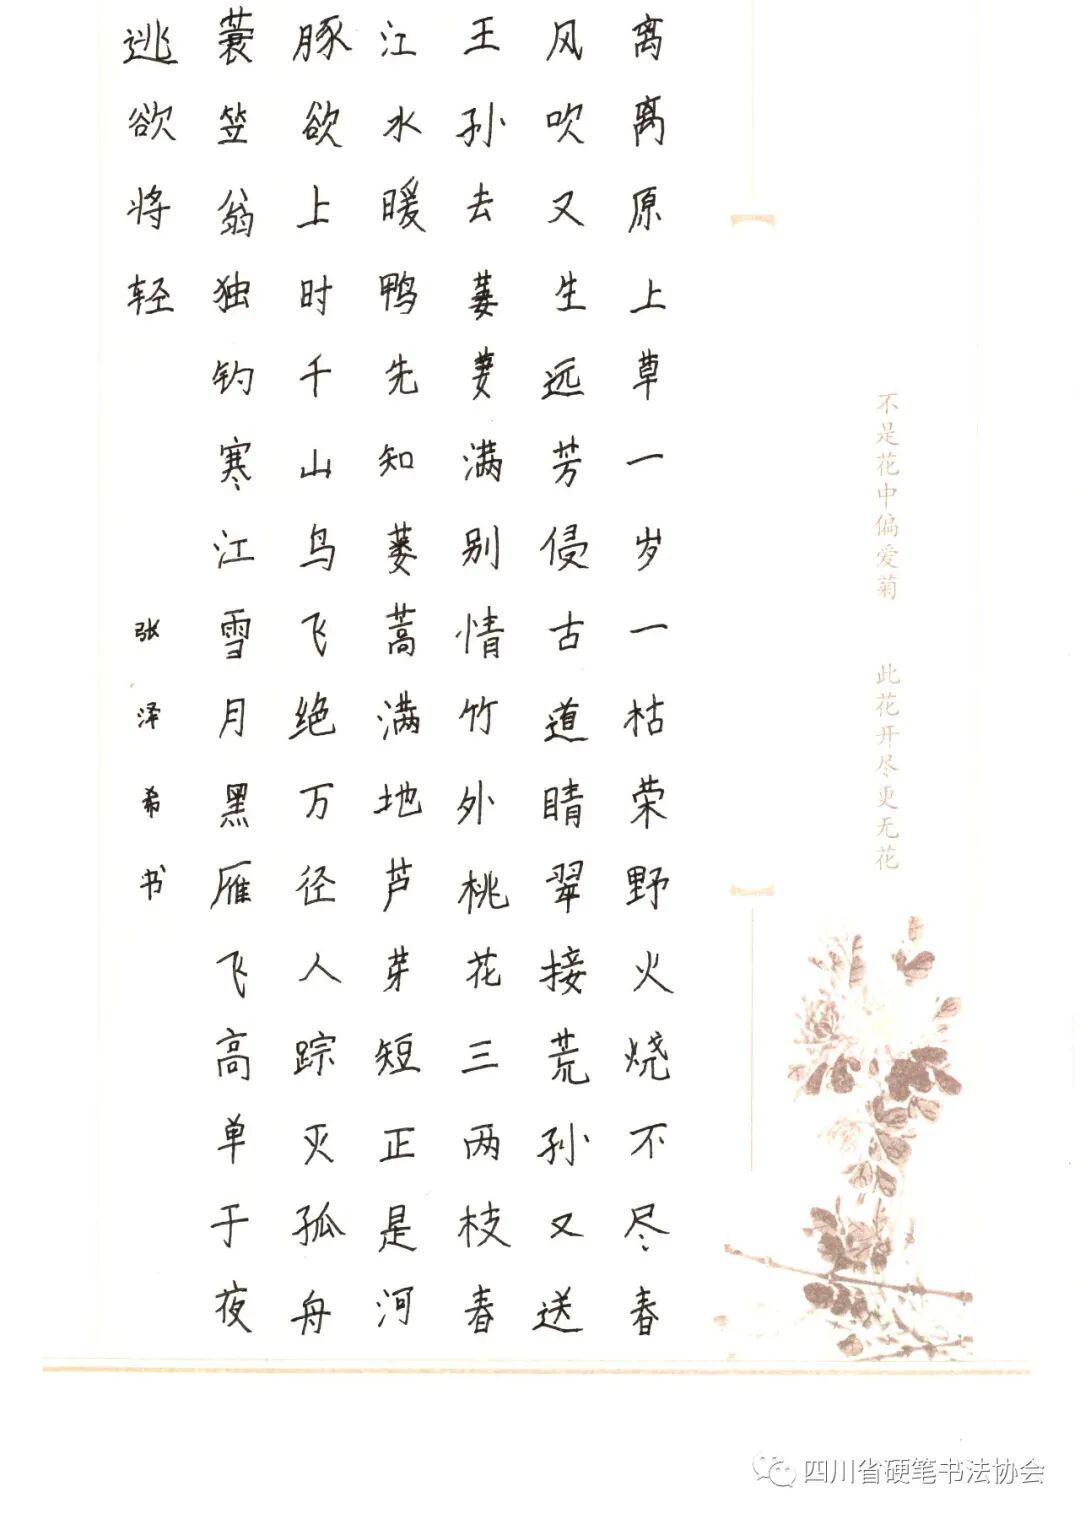 不是花中偏爱菊 此花开尽更无花
离离原上草一岁一枯荣野火烧不尽春
风吹又生远芳侵古道睛翠接荒孙又送
王孙去萋萋满别情竹外桃花三两枝春
江水暖鸭先知蒌蒿满地芦芽短正是河
豚欲上时千山鸟飞绝万径人踪灭孤舟
蓑笠翁独钓寒江雪月黑雁飞高单于夜
逃欲将轻
张泽希书
四川省硬笔书法协会